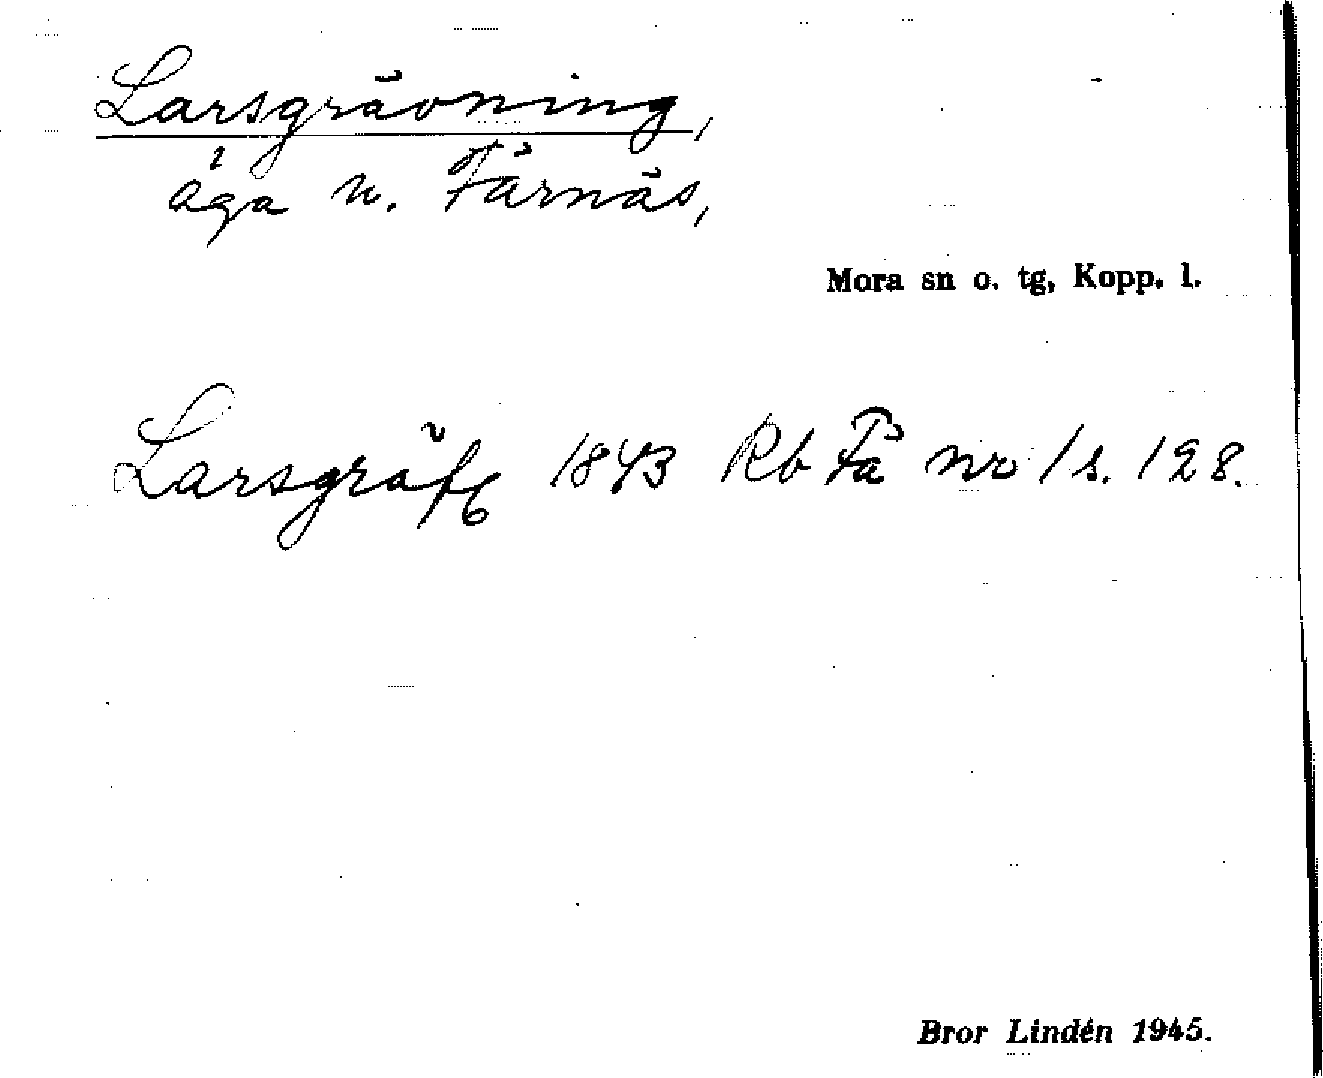 Larsgrävning,
äga n. Färnäs,
Mora sn o. tg, Kopp. l.
Larsgräfg 1843 Rb Fä nr 1 s. 128.
Bror Lindén 1945.